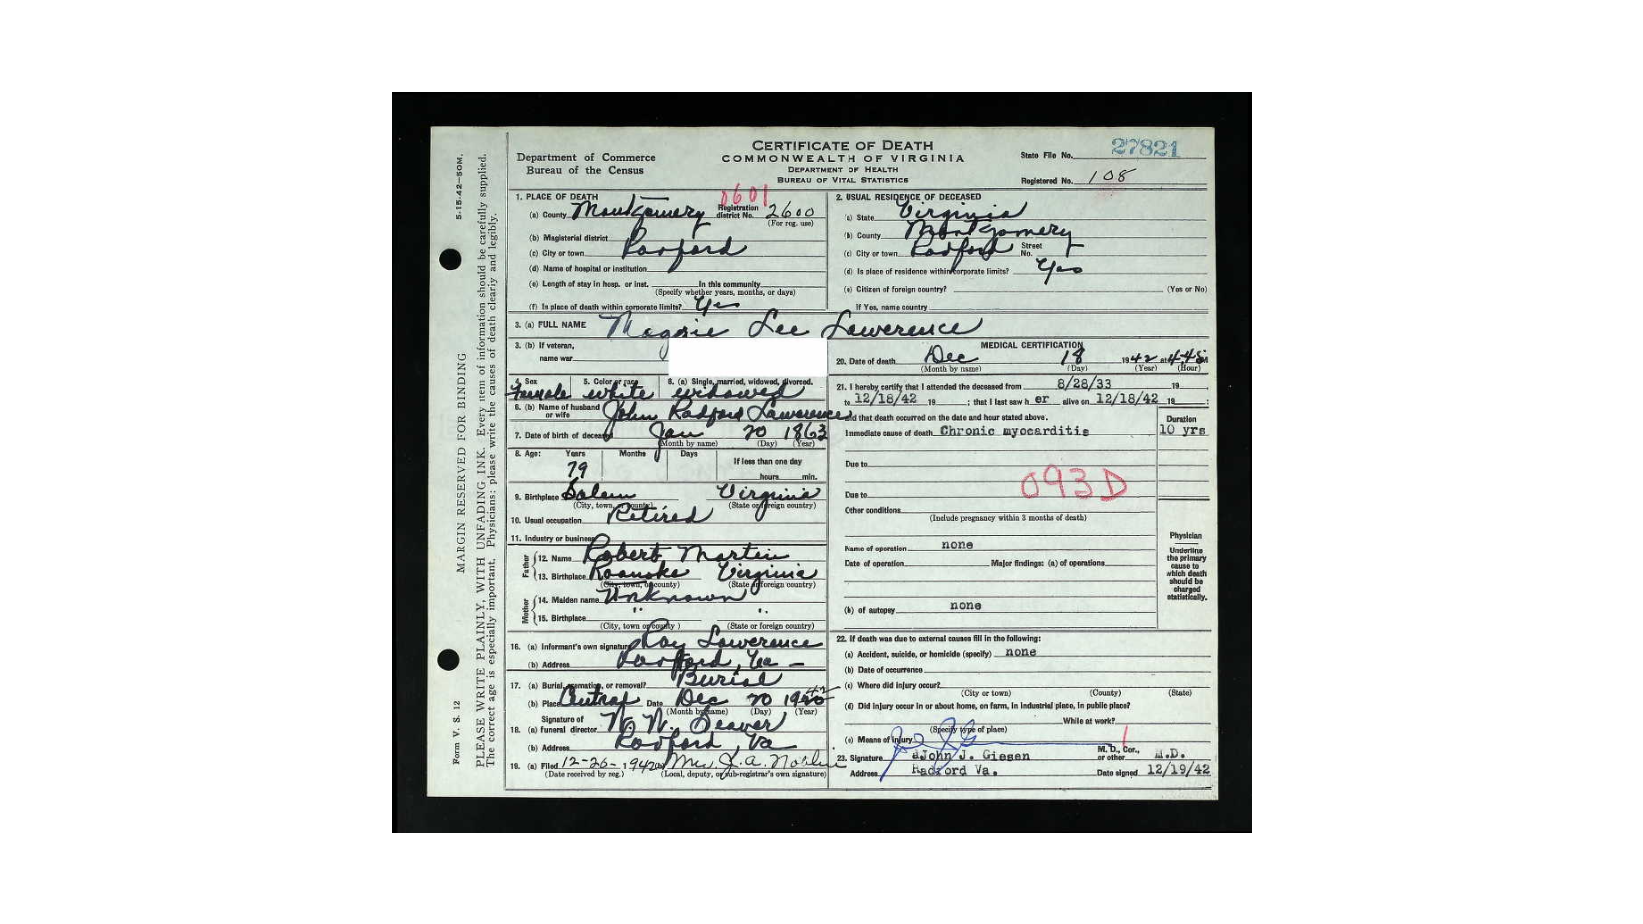 CERTIFICATE OF DEATH
COMMONWEALTH OF VIRGINIA
DEPARTMENT OF HEALTH
BUREAU OF VITAL STATISTICS
Department of Commerce
Bureau of the Census
State File No. 27821
Registered No. 108
5-15-42-50M.
MARGIN RESERVED FOR BINDING
Form V. S. 12
PLEASE WRITE PLAINLY, WITH UNFADING INK. Every item of information should be carefully supplied.
The correct age is especially important. Physicians: please write the causes of death clearly and legibly.
1. PLACE OF DEATH
0601
(a) County Montgomery Registration district No. 2600
(For reg. use)
(b) Magisterial district
(c) City or town Radford
(d) Name of hospital or institution
(e) Length of stay in hosp. or inst. In this community
(Specify whether years, months, or days)
(f) Is place of death within corporate limits? Yes
2. USUAL RESIDENCE OF DECEASED
State Virginia
County Montgomery
(c) City or town Radford Street No.
(d) Is place of residence within corporate limits? Yes
(e) Citizen of foreign country? (Yes or No)
If Yes, name country
3. (a) FULL NAME Maggie Lee Lawerence
3. (b) If veteran,
name war
4. Sex 5. Color or race 6. (a) Single, married, widowed, divorced.
Female white widowed
6. (b) Name of husband or wife John Radford Lawerence
7. Date of birth of deceased Jan 20 1863
(Month by name) (Day) (Year)
8. Age: Years Months Days If less than one day
79
hours min.
9. Birthplace Salem Virginia
(City, town, or county) (State or foreign country)
10. Usual occupation Retired
11. Industry or business
Father
12. Name Robert Martin
13. Birthplace Roanoke Virginia
(City, town, or county) (State or foreign country)
Mother
14. Maiden name Unknown
15. Birthplace " "
(City, town or county) (State or foreign country)
16. (a) Informant's own signature Roy Lawerence
(b) Address Radford, Va -
17. (a) Burial, cremation, or removal? Burial
(b) Place Central Date Dec 20 1942
(Month by name) (Day) (Year)
18. (a) Signature of funeral director
(b) Address Radford, Va
19. (a) Filed 12-26-1942 Mrs. J. A.
(Date received by reg.) (Local, deputy, or sub-registrar's own signature)
MEDICAL CERTIFICATION
20. Date of death Dec 18 1942 at 4:45
(Month by name) (Day) (Year) (Hour)
21. I hereby certify that I attended the deceased from 8/28/33 19
to 12/18/42 19 ; that I last saw her alive on 12/18/42 19 ;
and that death occurred on the date and hour stated above.
Duration
Immediate cause of death Chronic myocarditis 10 yrs
Due to
093D
Due to
Other conditions
(Include pregnancy within 3 months of death)
Name of operation none
Date of operation Major findings: (a) of operations
(b) of autopsy none
Physician
Underline
the primary
cause to
which death
should be
charged
statistically.
22. If death was due to external causes fill in the following:
(a) Accident, suicide, or homicide (specify) none
(b) Date of occurrence
(c) Where did injury occur?
(City or town) (County) (State)
(d) Did injury occur in or about home, on farm, in industrial place, in public place?
While at work?
(Specify type of place)
(e) Means of injury
23. Signature John J. Giesen M. D., Cor., or other M.D.
Address Radford Va. Date signed 12/19/42